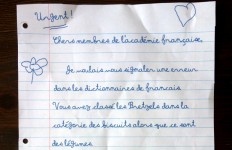 Urgent!
Chers membres de l'académie française,
Je voulais vous signaler une erreur
dans les dictionnaires de français.
Vous avez classé les Bretzels dans la
catégorie des biscuits alors que ce sont
des légumes.